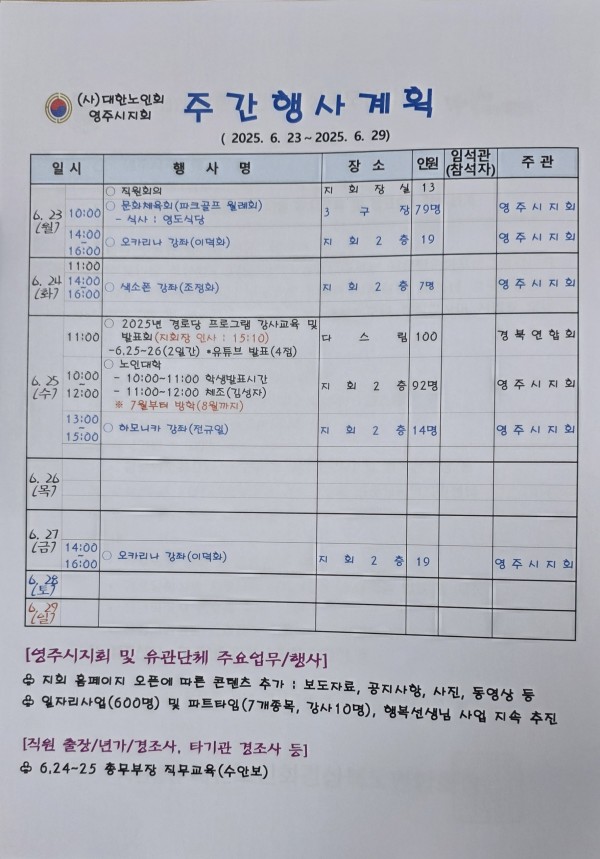 (사)대한노인회
영주시지회
주간행사계획
( 2025. 6. 23~2025. 6. 29)
일 시 행 사 명 장 소 인원 임석관(참석자) 주 관
6. 23 (월)
○ 직원회의 지 회 장 실 13
10:00 ○ 문화체육회(파크골프 월례회) 3 구 장 79명 영 주 시 지 회
- 식사 : 영도식당
14:00 - 16:00 ○ 오카리나 강좌(이덕화) 지 회 2 층 19 영 주 시 지 회
6. 24 (화)
11:00
14:00 - 16:00 ○ 색소폰 강좌(조정화) 지 회 2 층 7명 영 주 시 지 회
6. 25 (수)
11:00 ○ 2025년 경로당 프로그램 강사교육 및
발표회(지회장 인사 : 15:10) 다 스 림 100 경 북 연 합 회
-6.25~26(2일간) *유튜브 발표(4점)
10:00 - 12:00 ○ 노인대학
- 10:00~11:00 학생발표시간 지 회 2 층 92명 영 주 시 지 회
- 11:00~12:00 체조(김성자)
※ 7월부터 방학(8월까지)
13:00 - 15:00 ○ 하모니카 강좌(전규일) 지 회 2 층 14명 영 주 시 지 회
6. 26 (목)
6. 27 (금)
14:00 - 16:00 ○ 오카리나 강좌(이덕화) 지 회 2 층 19 영 주 시 지 회
6. 28 (토)
6. 29 (일)
[영주시지회 및 유관단체 주요업무/행사]
♧ 지회 홈페이지 오픈에 따른 콘텐츠 추가 : 보도자료, 공지사항, 사진, 동영상 등
♧ 일자리사업(600명) 및 파트타임(7개종목, 강사10명), 행복선생님 사업 지속 추진
[직원 출장/년가/경조사, 타기관 경조사 등]
♧ 6.24~25 총무부장 직무교육(수안보)